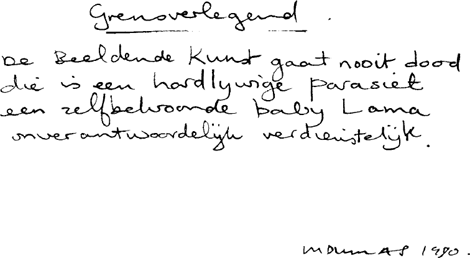 Grensverleggend.
De Beeldende Kunst gaat nooit dood
die is een hardlywige parasiet
een zelfbekroonde baby Lama
onverantwoordelijk verdienstelijk.
MDUMAS 1990.